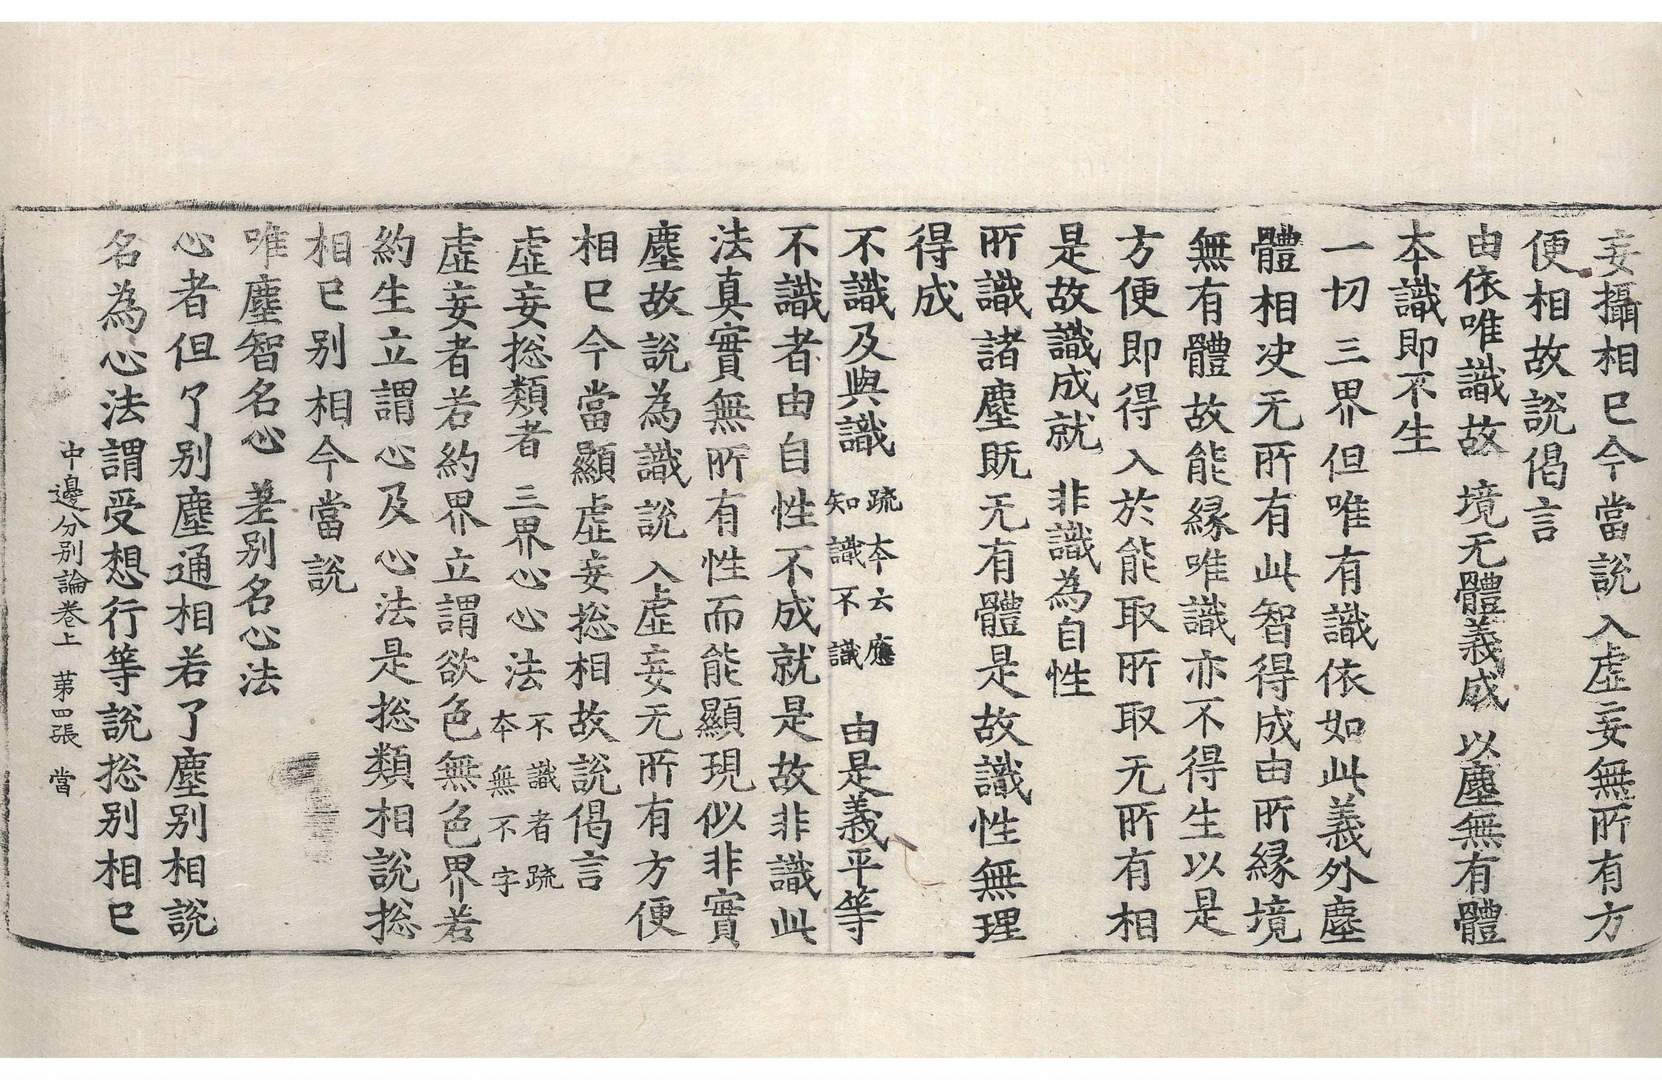 妄攝相已今當說入虛妄無所有方
便相故說偈言
由依唯識故 境无體義成 以塵無有體
本識即不生
一切三界但唯有識依如此義外塵
體相决无所有此智得成由所緣境
無有體故能緣唯識亦不得生以是
方便即得入於能取所取无所有相
是故識成就 非識為自性
所識諸塵既无有體是故識性無理
得成
不識及與識 䟽本云應
知識不識 由是義平等
不識者由自性不成就是故非識此
法真實無所有性而能顯現似非實
塵故說為識說入虛妄无所有方便
相已今當顯虛妄捴相故說偈言
虛妄捴類者 三界心心法 不識者䟽
本無不字
虛妄者若約界立謂欲色無色界若
約生立謂心及心法是捴類相說捴
相已别相今當說
唯塵智名心 差别名心法
心者但了别塵通相若了塵别相說
名為心法謂受想行等說捴别相已
中邊分别論卷上 第四張 當